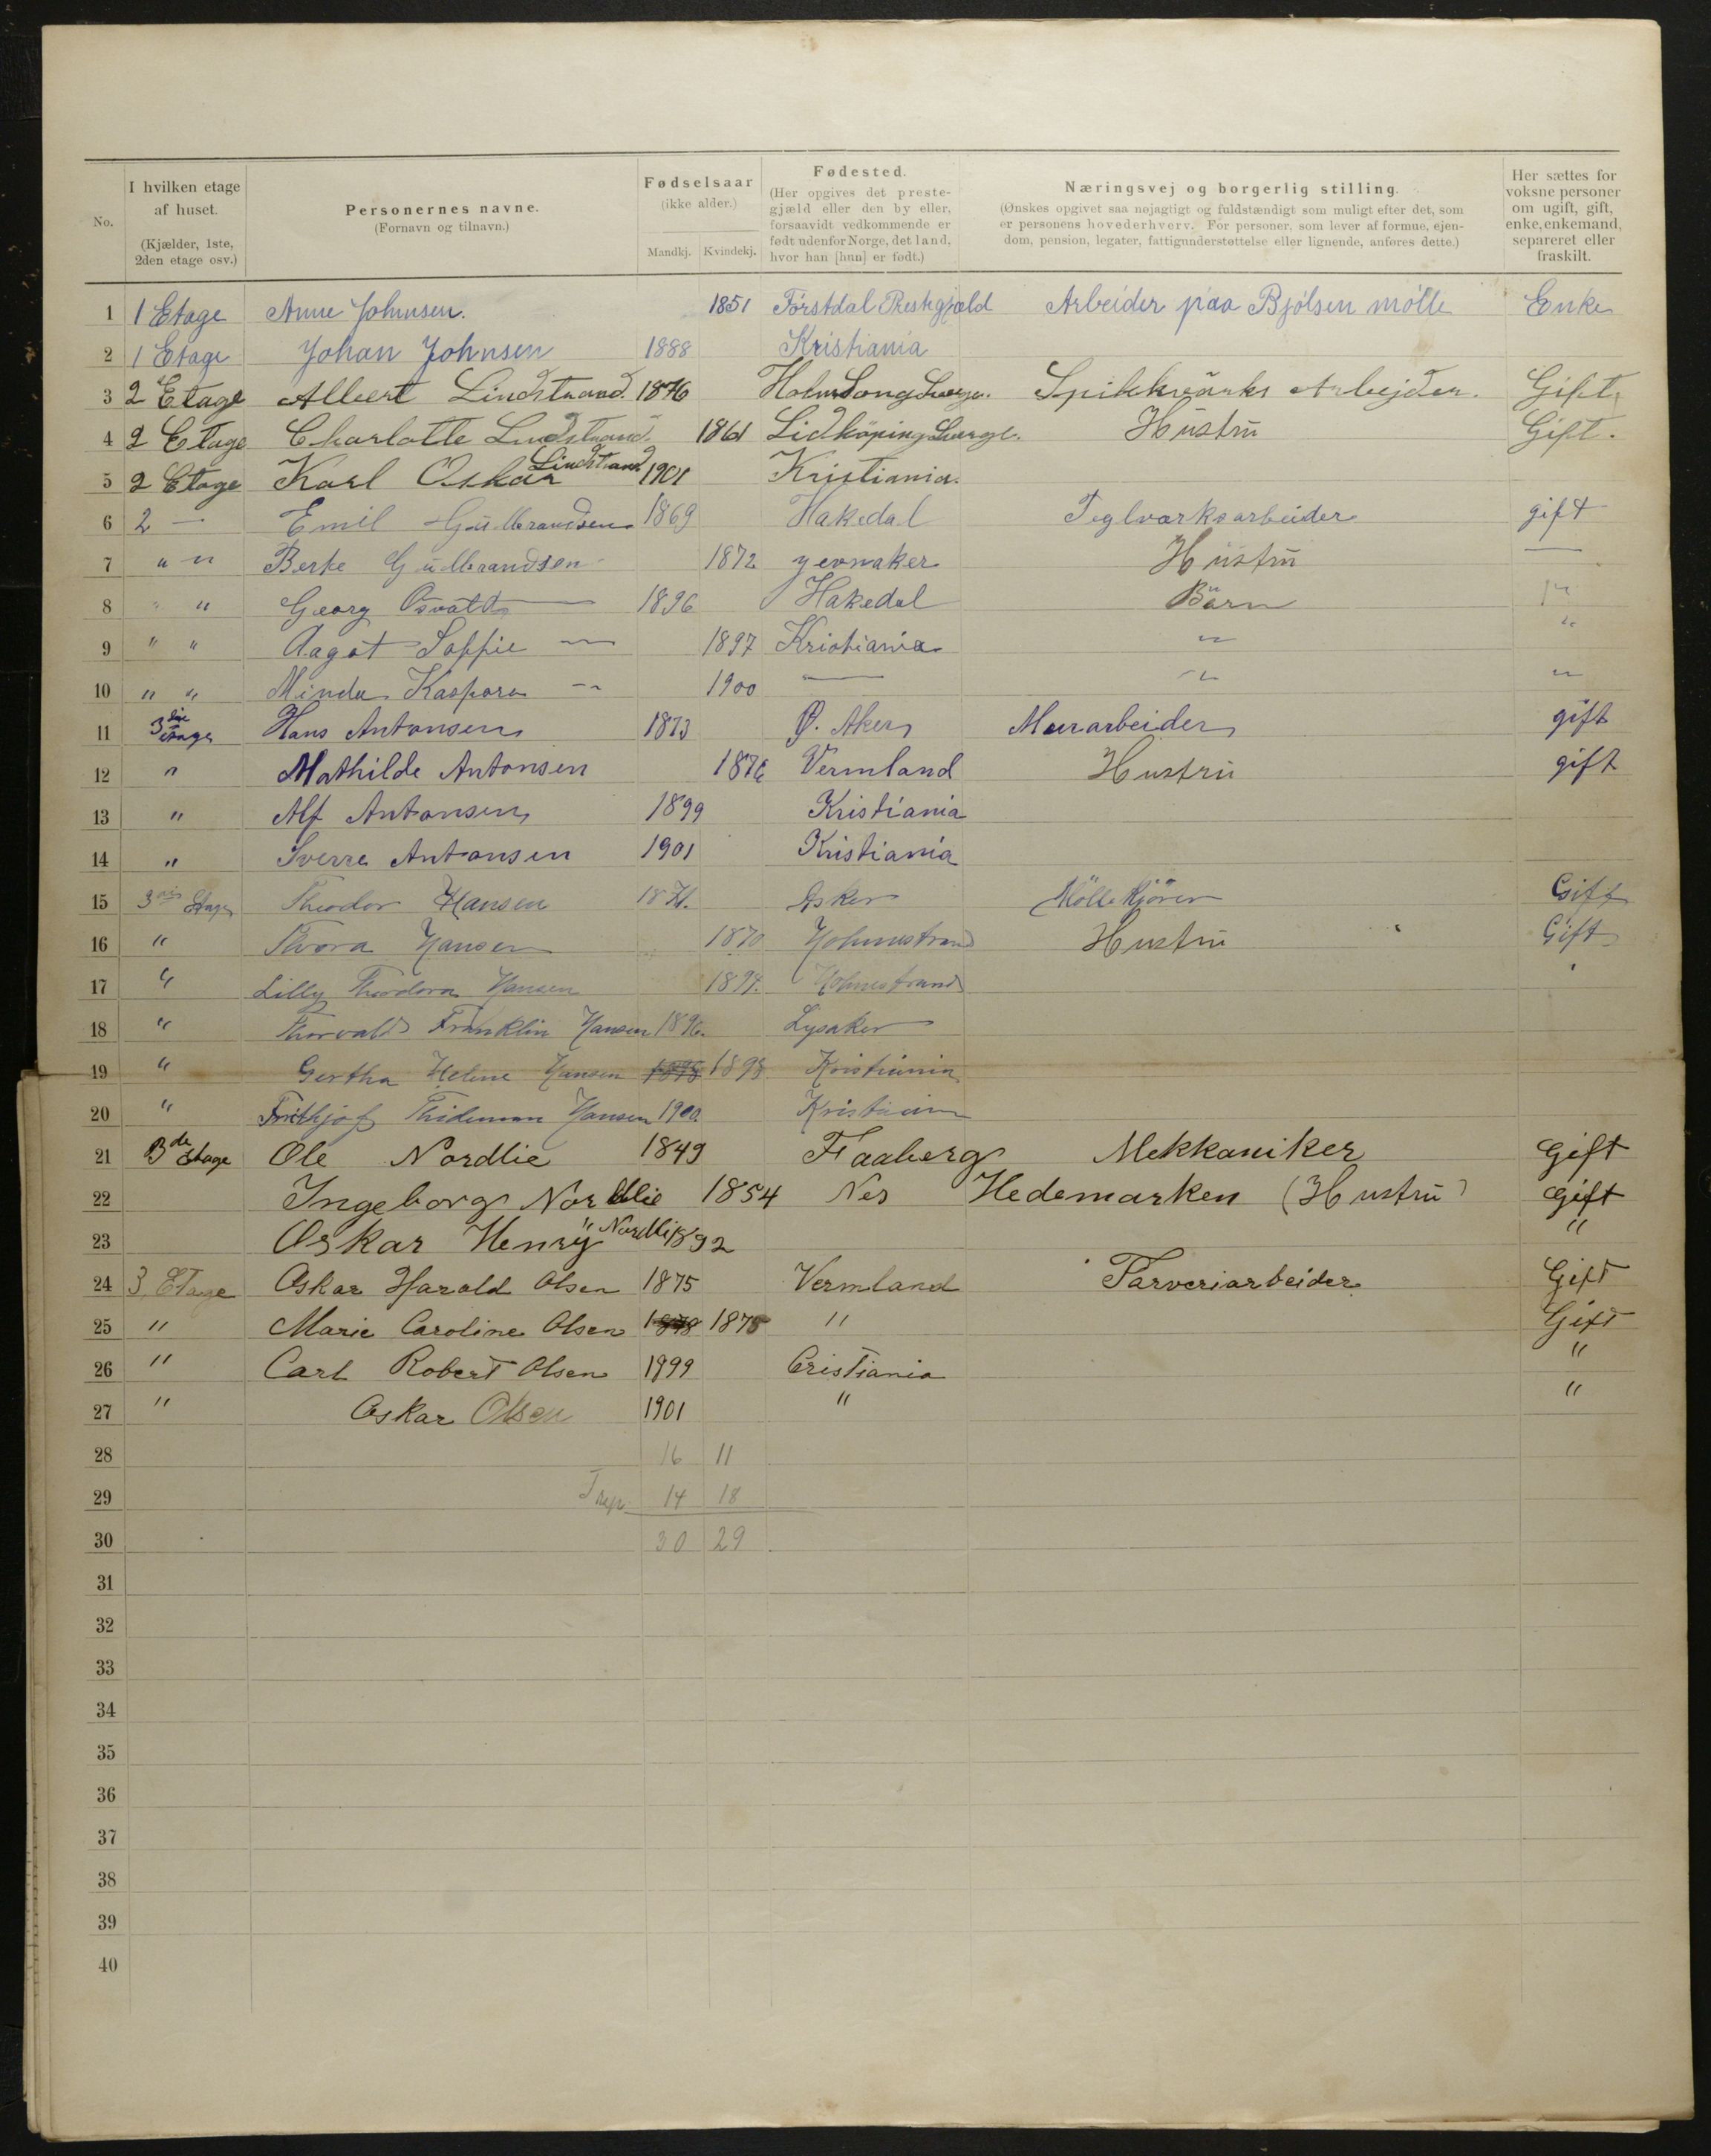 No.
I hvilken etage af huset. (Kjælder, 1ste, 2den etage osv.)
Personernes navne. (Fornavn og tilnavn.)
Fødselsaar (ikke alder.) Mandkj. Kvindekj.
Fødested. (Her opgives det prestegjæld eller den by eller, forsaavidt vedkommende er født udenfor Norge, det land, hvor han [hun] er født.)
Næringsvej og borgerlig stilling. (Ønskes opgivet saa nøjagtigt og fuldstændigt som muligt efter det, som er personens hovederhverv. For personer, som lever af formue, ejendom, pension, legater, fattigunderstøttelse eller lignende, anføres dette.)
Her sættes for voksne personer om ugift, gift, enke, enkemand, separeret eller fraskilt.
1 1 Etage Anne Johnsen. 1851 Arbeider paa Bjølsen mølle Enke
2 1 Etage Johan Johnsen 1888 Kristiania
3 2 Etage Albert Lindstrand. 1876 Spikkværks Arbejder. Gift
4 2 Etage Charlotte Lindstrand 1861 Lidköping Sverge. Hustru Gift.
5 2 Etage Karl Oskar Lindstrand 1901 Kristiania.
6 2 — Emil Gudbrandsen 1869 Hakedal Teglværksarbeider gift
7 " " Berte Gudbrandsen 1872 Jevnaker Hustru —
8 " " Georg Osvald — 1896 Hakedal Börn "
9 " " Aagot Soffie — 1897 Kristiania " "
10 " " Minda Kaspara — 1900 — " "
11 3die etage Hans Antonsen 1873 Ø. Aker Murarbeider gift
12 " Mathilde Antonsen 1876 Vermland Hustru gift
13 " Alf Antonsen 1899 Kristiania
14 " Sverre Antonsen 1901 Kristiania
15 3die Etage Theodor Hansen 1871. Asker Möllekjörer Gift
16 " Thora Hansen 1870 Holmestrand Hustru Gift
17 " Lilly Theodora Hansen 1894. Holmestrand
18 " Thorvald Franklin Hansen 1896. Lysaker
19 " Gertha Helene Hansen 1898 1898 Kristiania
20 " Frithjof Thidemann Hansen 1900. Kristiania
21 3de Etage Ole Nordlie 1849 Faaberg Mekkaniker Gift
22 Ingeborg Nordlie 1854 Nes Hedemarken (Hustru) Gift
23 Oskar Henry Nordli 1892 "
24 3 Etage Oskar Harald Olsen 1875 Vermland Farveriarbeider Gift
25 " Marie Caroline Olsen 1878 1875 " Gift
26 " Carl Robert Olsen 1899 Cristiania "
27 " Oskar Olsen 1901 " "
28 16 11
29 14 18
30 30 29
31
32
33
34
35
36
37
38
39
40